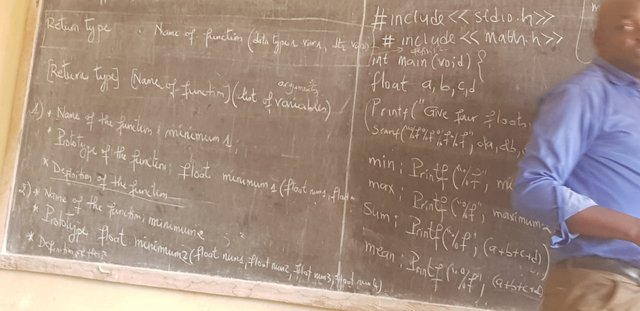 Return type Name of function (data types vars, etc void)
[Return type] [Name of function] (list of variables)
arguments
1) * Name of the function: minimum1,
* Prototype of the function: float minimum1 (float num1, float
* Definition of the function
2) * Name of the function: minimum2
* Prototype float minimum2 (float num1, float num2, float num3, float num4)
* Definition of the
#include << stdio.h >>
# include << math.h >>
int main (void) {
float a, b, c, d
(Printf ("Give four floats
Scanf ("%f %f %f %f", &a, &b,
min: Printf ("%f",
max: Printf ("%f", maximum
Sum: Printf ("%f", (a+b+c+d)
mean: Printf ("%f", (a+b+c+d)